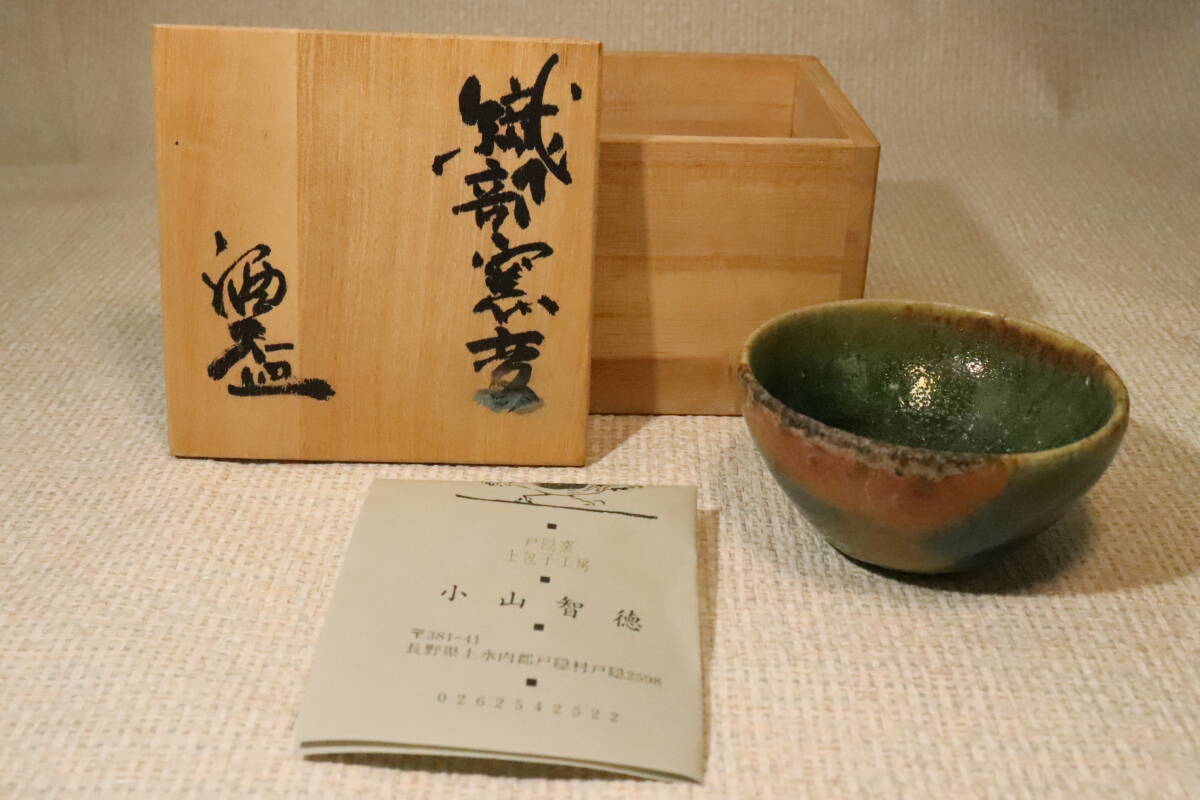 織部窯変
酒盃
戸隠窯
土包子工房
小山智徳
〒381-41
長野県上水内郡戸隠村戸隠2598
0262542522